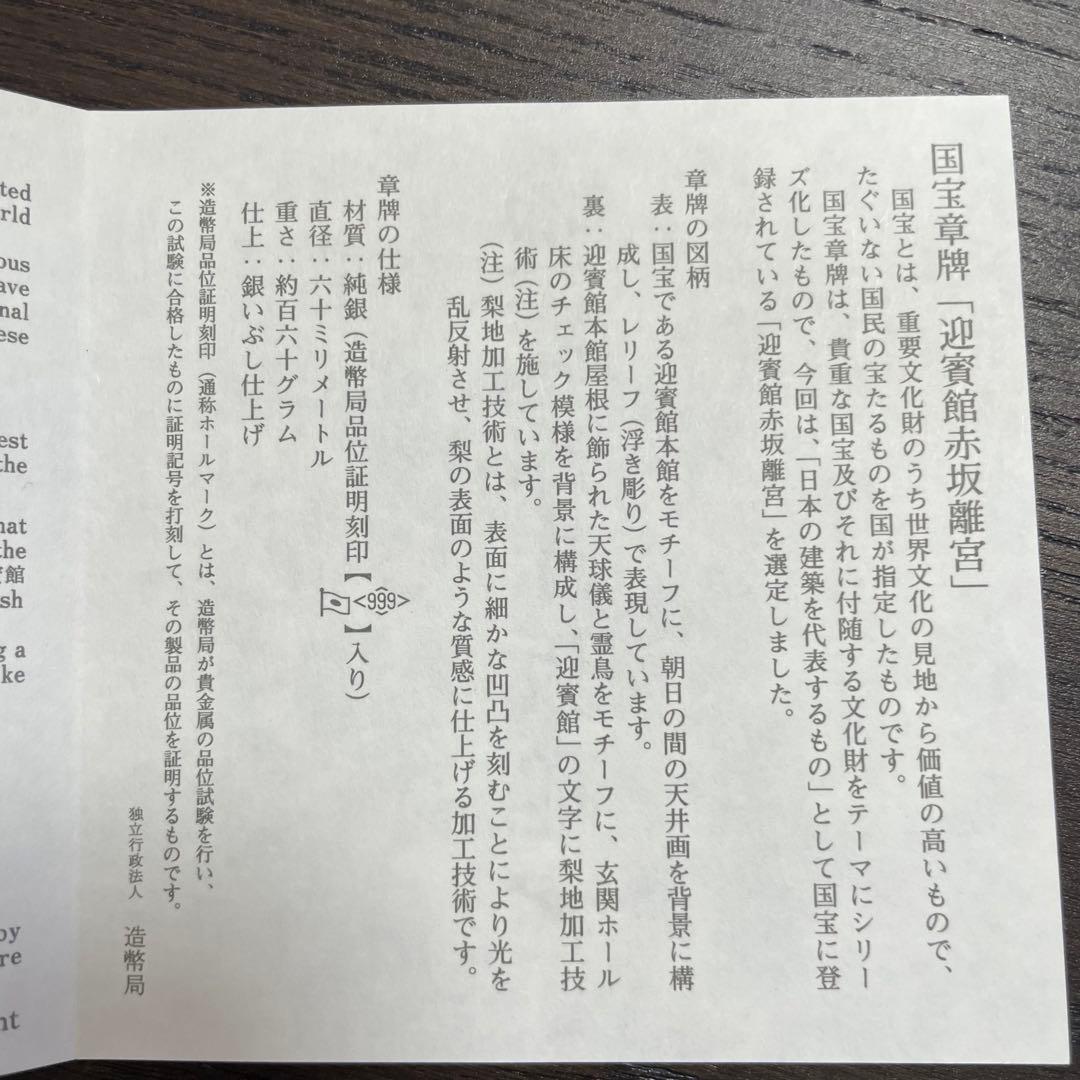 国宝章牌「迎賓館赤坂離宮」
国宝とは、重要文化財のうち世界文化の見地から価値の高いもので、
たぐいない国民の宝たるものを国が指定したものです。
国宝章牌は、貴重な国宝及びそれに付随する文化財をテーマにシリー
ズ化したもので、今回は、「日本の建築を代表するもの」として国宝に登
録されている「迎賓館赤坂離宮」を選定しました。
章牌の図柄
表：国宝である迎賓館本館をモチーフに、朝日の間の天井画を背景に構
成し、レリーフ（浮き彫り）で表現しています。
裏：迎賓館本館屋根に飾られた天球儀と霊鳥をモチーフに、玄関ホール
床のチェック模様を背景に構成し、「迎賓館」の文字に梨地加工技
術（注）を施しています。
（注）梨地加工技術とは、表面に細かな凹凸を刻むことにより光を
乱反射させ、梨の表面のような質感に仕上げる加工技術です。
章牌の仕様
材質：純銀（造幣局品位証明刻印【<999>】入り）
直径：六十ミリメートル
重さ：約百六十グラム
仕上：銀いぶし仕上げ
※造幣局品位証明刻印（通称ホールマーク）とは、造幣局が貴金属の品位試験を行い、
この試験に合格したものに証明記号を打刻して、その製品の品位を証明するものです。
独立行政法人 造幣局
ted
rld
ous
ave
nal
ese
est
the
hat
the
賓館
sh
g a
ke
oy
re
nt